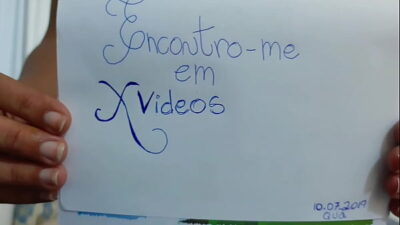 Encontro-me
em
XVideos
10.07.2019
Qua